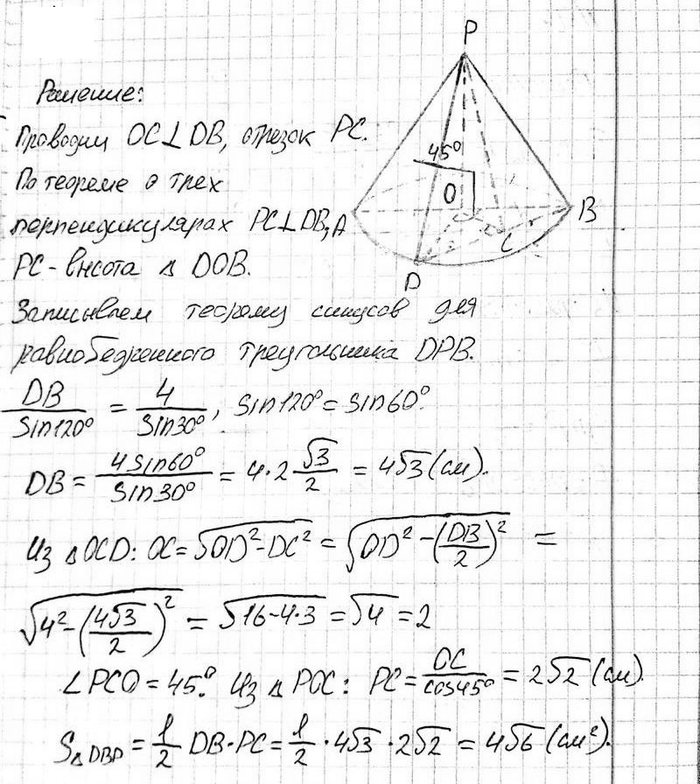 P
Решение:
Проводим OC⊥DB, отрезок PC.
45°
По теореме о трех
O
B
перпендикулярах PC⊥DB,
A
C
PC - высота △ DOB.
D
Записываем теорему синусов для
равнобедренного треугольника DPB.
DB/Sin120° = 4/Sin30°, Sin120° = Sin60°.
DB = 4Sin60°/Sin30° = 4·2 √3/2 = 4√3 (см).
Из △OCD: OC = √(OD²-DC²) = √(OD²-(DB/2)²) =
√(4²-(4√3/2)²) = √(16-4·3) = √4 = 2
∠PCO = 45°. Из △ POC: PC = OC/cos45° = 2√2 (см).
S△DBP = 1/2 DB·PC = 1/2 · 4√3 · 2√2 = 4√6 (см²).